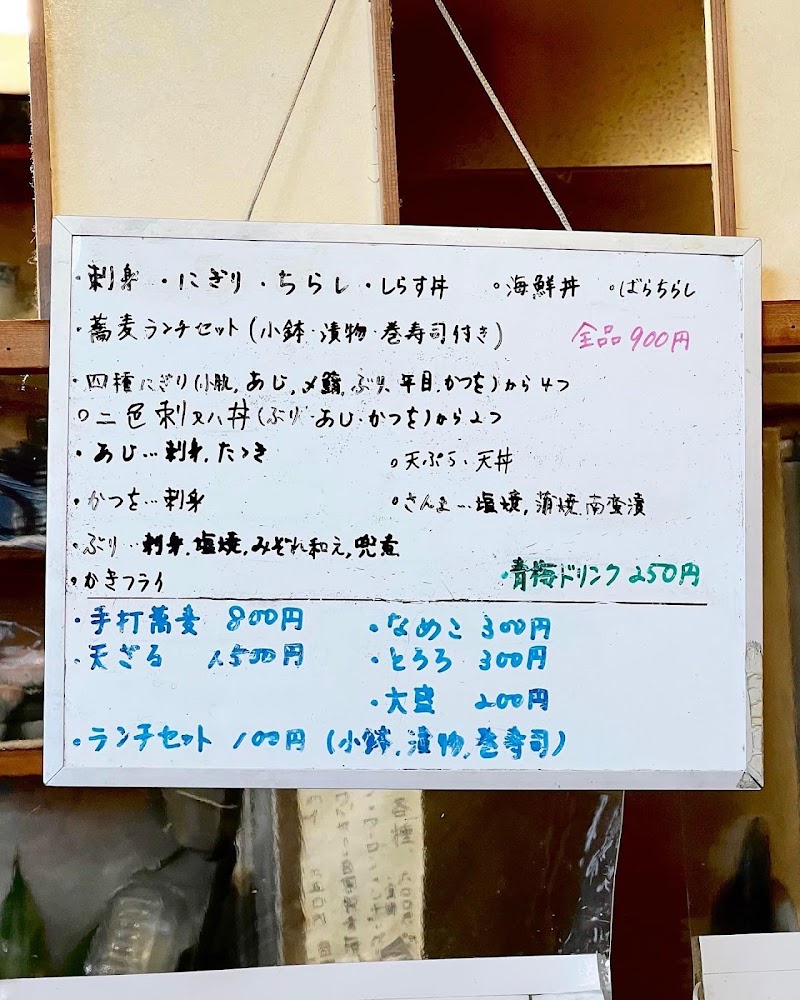 ・刺身 ・にぎり ・ちらし ・しらす丼 ○海鮮丼 ○ばらちらし
・蕎麦ランチセット(小鉢・漬物・巻寿司付き) 全品900円
・四種にぎり(小肌,あじ,〆鯖,ぶり,平目,かつを)から4つ
○二色刺又ハ丼(ぶり・あじ・かつを)から2つ
・あじ…刺身,たたき ○天ぷら、天丼
・かつを…刺身 ○さんま…塩焼,蒲焼,南蛮漬
・ぶり…刺身,塩焼,みぞれ和え,兜煮
・かきフライ ・青梅ドリンク250円
・手打蕎麦 800円 ・なめこ 300円
・天ざる 1500円 ・とろろ 300円
・大盛 200円
・ランチセット 100円 (小鉢,漬物,巻寿司)